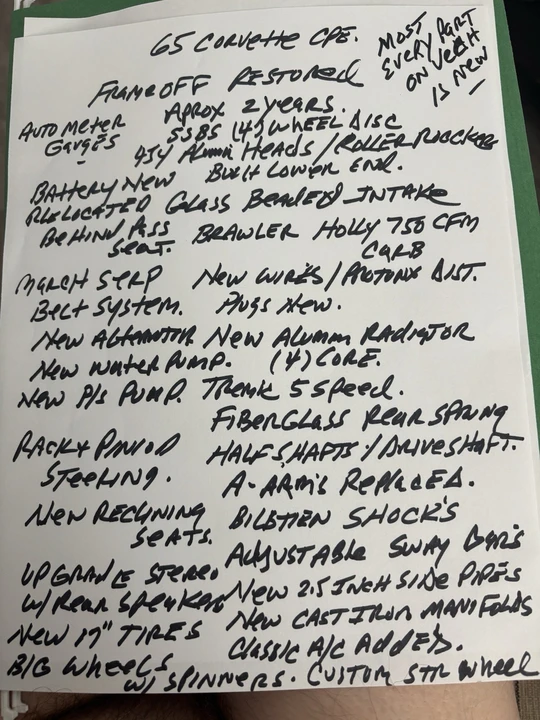 65 CORVETTE CPE.
MOST
EVERY PART
ON VEEH
IS NEW
FRAME OFF RESTORED
APROX 2 YEARS.
AUTO METER
GAUGES
SSBS (4) WHEEL DISC
454 Alumin HEADS / ROLLER ROCKERS
Built Lower End.
BATTERY NEW
RELOCATED
BEHIND PASS
SEAT.
GLASS BEADED INTAKE
BRAWLER HOLLY 750 CFM
CARB
MARCH SERP
BELT SYSTEM.
NEW WIRES / PROTONX DIST.
PLUGS NEW.
NEW ALTERNATOR
NEW ALUMIN RADIATOR
NEW WATER PUMP.
(4) CORE.
NEW P/S PUMP.
TREMK 5 SPEED.
FIBERGLASS REAR SPRING
RACK & PINIOD
STEERING.
HALF SHAFTS / DRIVESHAFT.
A-ARM'S REPLACED.
NEW RECLINING
SEATS.
BILSTIEN SHOCK'S
ADJUSTABLE SWAY BAR'S
UPGRADE STEREO
W/ REAR SPEAKERS
NEW 2.5 INCH SIDE PIPES
NEW CAST IRON MANIFOLDS
NEW 17" TIRES
CLASSIC A/C ADDED.
BIG WHEELS
W/ SPINNERS. CUSTOM STR WHEEL